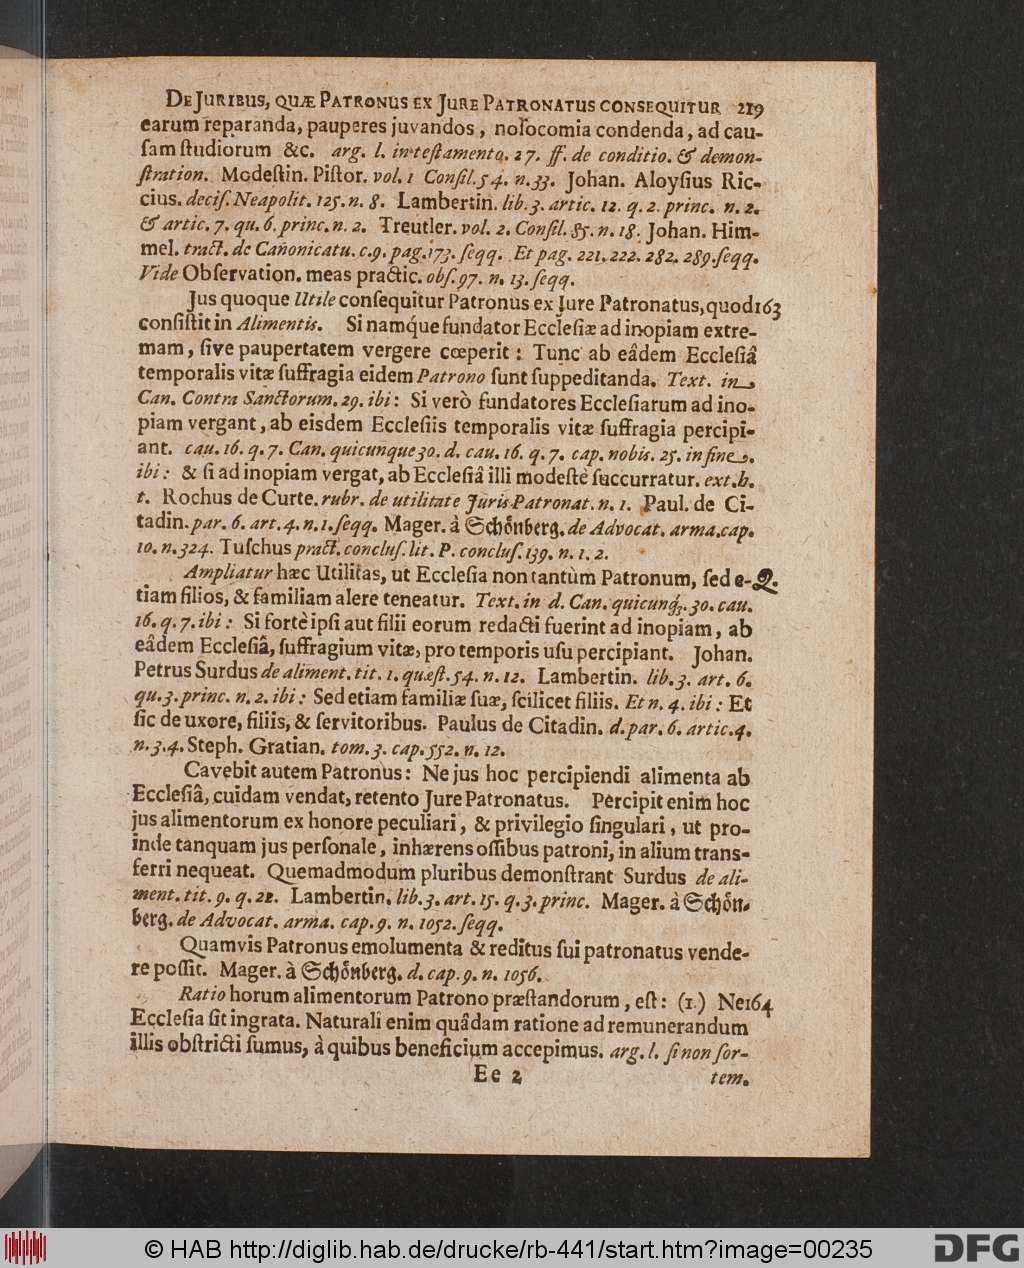 DE JURIBUS, QUÆ PATRONUS EX JURE PATRONATUS CONSEQUITUR 219
earum reparanda, pauperes juvandos, nosocomia condenda, ad cau-
ſam ſtudiorum &c. arg. l. in teſtamento. 27. ff. de conditio. & demon-
ſtration. Modeſtin. Piſtor. vol. 1 Conſil. 54. n. 33. Johan. Aloyſius Ric-
cius. deciſ. Neapolit. 125. n. 8. Lambertin. lib. 3. artic. 12. q. 2. princ. n. 2.
& artic. 7. qu. 6. princ. n. 2. Treutler. vol. 2. Conſil. 85. n. 18. Johan. Him-
mel. tract. de Canonicatu. c. 9. pag. 173. ſeqq. Et pag. 221. 222. 282. 289. ſeqq.
Vide Obſervation. meas practic. obſ. 97. n. 13. ſeqq.
Jus quoque Utile conſequitur Patronus ex Jure Patronatus, quod 163
conſiſtit in Alimentis. Si namq́ue fundator Eccleſiæ ad inopiam extre-
mam, ſive paupertatem vergere cœperit: Tunc ab eâdem Eccleſiâ
temporalis vitæ ſuffragia eidem Patrono ſunt ſuppeditanda. Text. in
Can. Contra Sanctorum. 29. ibi: Si verò fundatores Eccleſiarum ad ino-
piam vergant, ab eisdem Eccleſiis temporalis vitæ ſuffragia percipi-
ant. cau. 16. q. 7. Can. quicunque 30. d. cau. 16. q. 7. cap. nobis. 25. in fine.
ibi: & ſi ad inopiam vergat, ab Eccleſiâ illi modeſtè ſuccurratur. ext. h.
t. Rochus de Curte. rubr. de utilitate Juris Patronat. n. 1. Paul. de Ci-
tadin. par. 6. art. 4. n. 1. ſeqq. Mager. à Schönberg. de Advocat. arma. cap.
10. n. 324. Tuſchus pract. concluſ. lit. P. concluſ. 139. n. 1. 2.
Ampliatur hæc Utilitas, ut Eccleſia non tantùm Patronum, ſed e- Q.
tiam filios, & familiam alere teneatur. Text. in d. Can. quicunq́. 30. cau.
16. q. 7. ibi: Si fortè ipſi aut filii eorum redacti fuerint ad inopiam, ab
eâdem Eccleſiâ, ſuffragium vitæ, pro temporis uſu percipiant. Johan.
Petrus Surdus de aliment. tit. 1. quæſt. 54. n. 12. Lambertin. lib. 3. art. 6.
qu. 3. princ. n. 2. ibi: Sed etiam familiæ ſuæ, ſcilicet filiis. Et n. 4. ibi: Et
ſic de uxore, filiis, & ſervitoribus. Paulus de Citadin. d. par. 6. artic. 4.
n. 3. 4. Steph. Gratian. tom. 3. cap. 552. n. 12.
Cavebit autem Patronus: Ne jus hoc percipiendi alimenta ab
Eccleſiâ, cuidam vendat, retento Jure Patronatus. Percipit enim hoc
jus alimentorum ex honore peculiari, & privilegio ſingulari, ut pro-
inde tanquam jus perſonale, inhærens oſſibus patroni, in alium trans-
ferri nequeat. Quemadmodum pluribus demonſtrant Surdus de ali-
ment. tit. 9. q. 21. Lambertin. lib. 3. art. 15. q. 3. princ. Mager. à Schön-
berg. de Advocat. arma. cap. 9. n. 1052. ſeqq.
Quamvis Patronus emolumenta & reditus ſui patronatus vende-
re poſſit. Mager. à Schönberg. d. cap. 9. n. 1056.
Ratio horum alimentorum Patrono præſtandorum, eſt: (1.) Ne 164
Eccleſia ſit ingrata. Naturali enim quâdam ratione ad remunerandum
illis obſtricti ſumus, à quibus beneficium accepimus. arg. l. ſi non ſor-
Ee 2 tem.
© HAB http://diglib.hab.de/drucke/rb-441/start.htm?image=00235
DFG